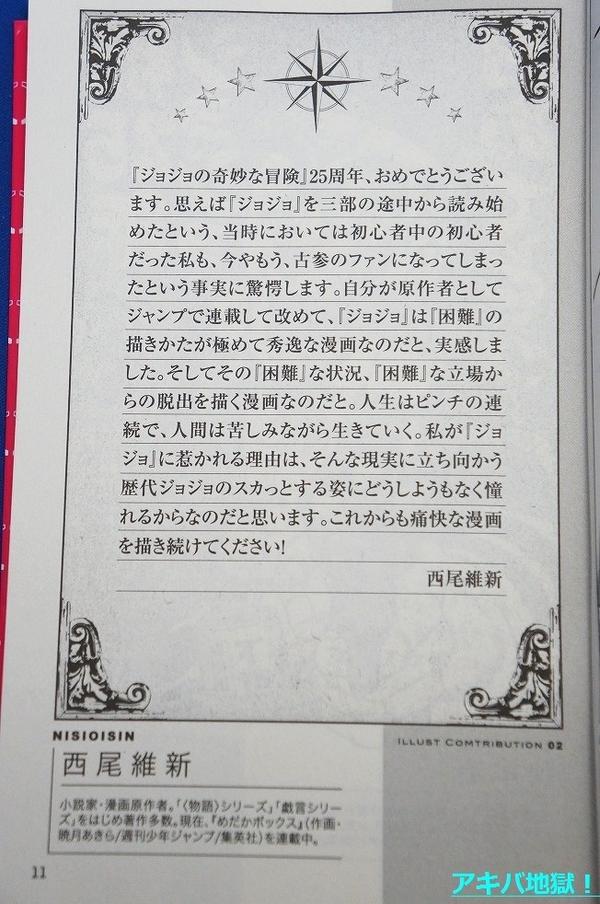 『ジョジョの奇妙な冒険』25周年、おめでとうござい
ます。思えば『ジョジョ』を三部の途中から読み始
めたという、当時においては初心者中の初心者
だった私も、今やもう、古参のファンになってしまっ
たという事実に驚愕します。自分が原作者として
ジャンプで連載して改めて、『ジョジョ』は『困難』の
描きかたが極めて秀逸な漫画なのだと、実感しま
した。そしてその『困難』な状況、『困難』な立場か
らの脱出を描く漫画なのだと。人生はピンチの連
続で、人間は苦しみながら生きていく。私が『ジョ
ジョ』に惹かれる理由は、そんな現実に立ち向かう
歴代ジョジョのスカっとする姿にどうしようもなく憧
れるからなのだと思います。これからも痛快な漫画
を描き続けてください!
西尾維新
NISIOISIN
ILLUST COMTRIBUTION 02
西尾維新
小説家・漫画原作者。「〈物語〉シリーズ」「戯言シリー
ズ」をはじめ著作多数。現在、『めだかボックス』(作画・
暁月あきら/週刊少年ジャンプ/集英社)を連載中。
11
アキバ地獄！